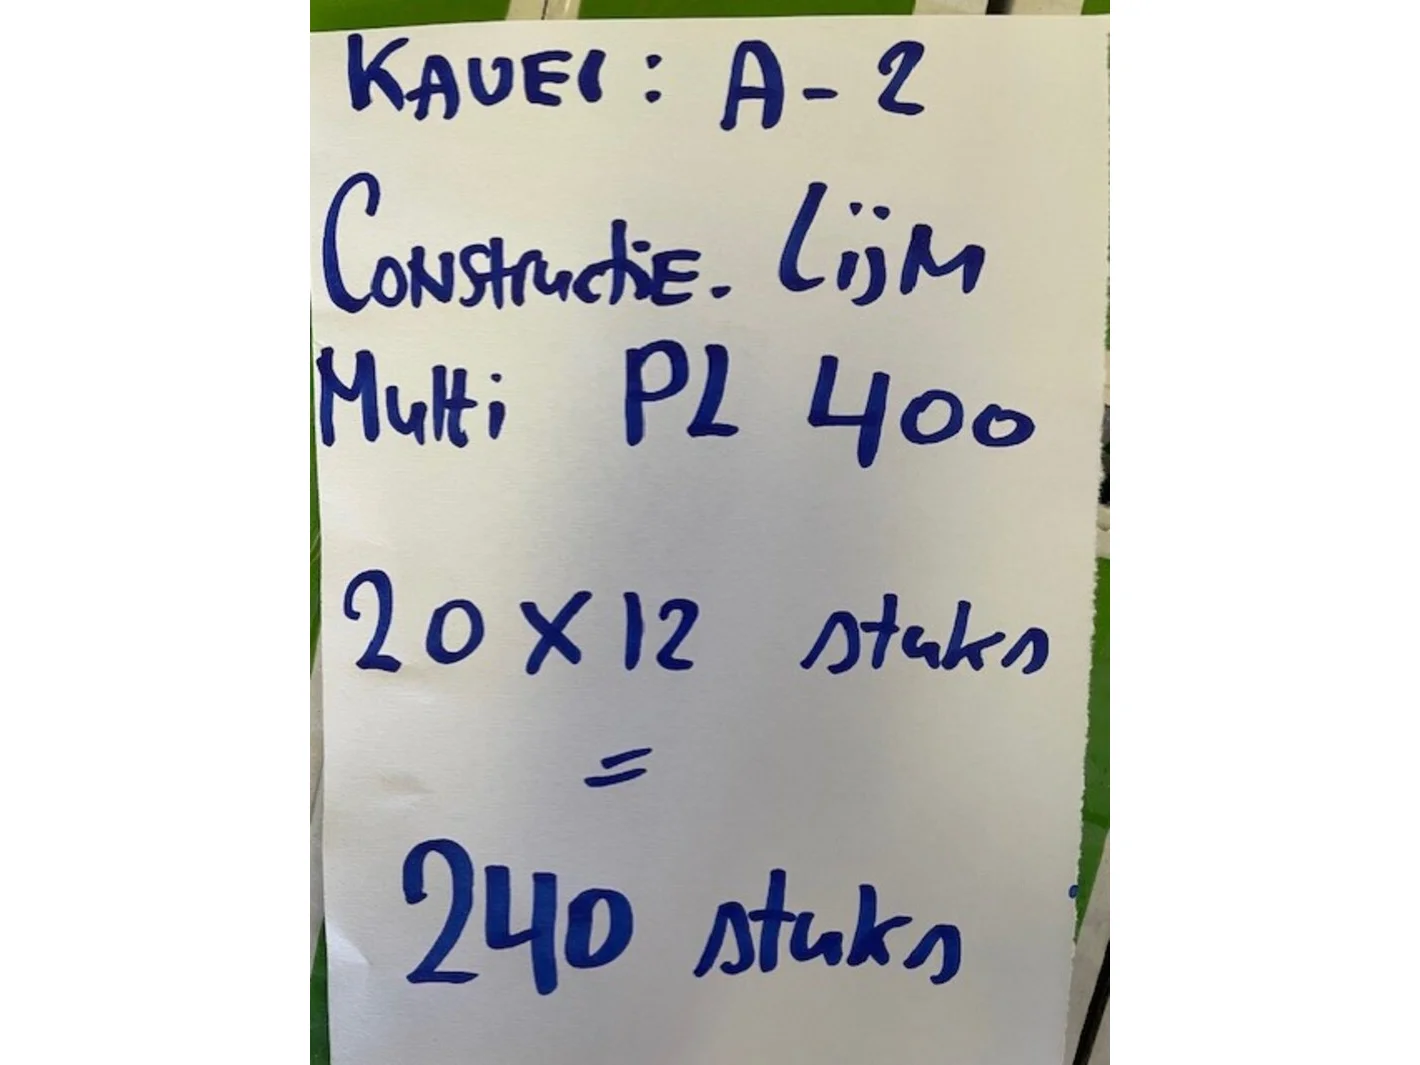 KAVEL: A-2
Constructie. Lijm
Multi PL 400
20 X 12 stuks
=
240 stuks